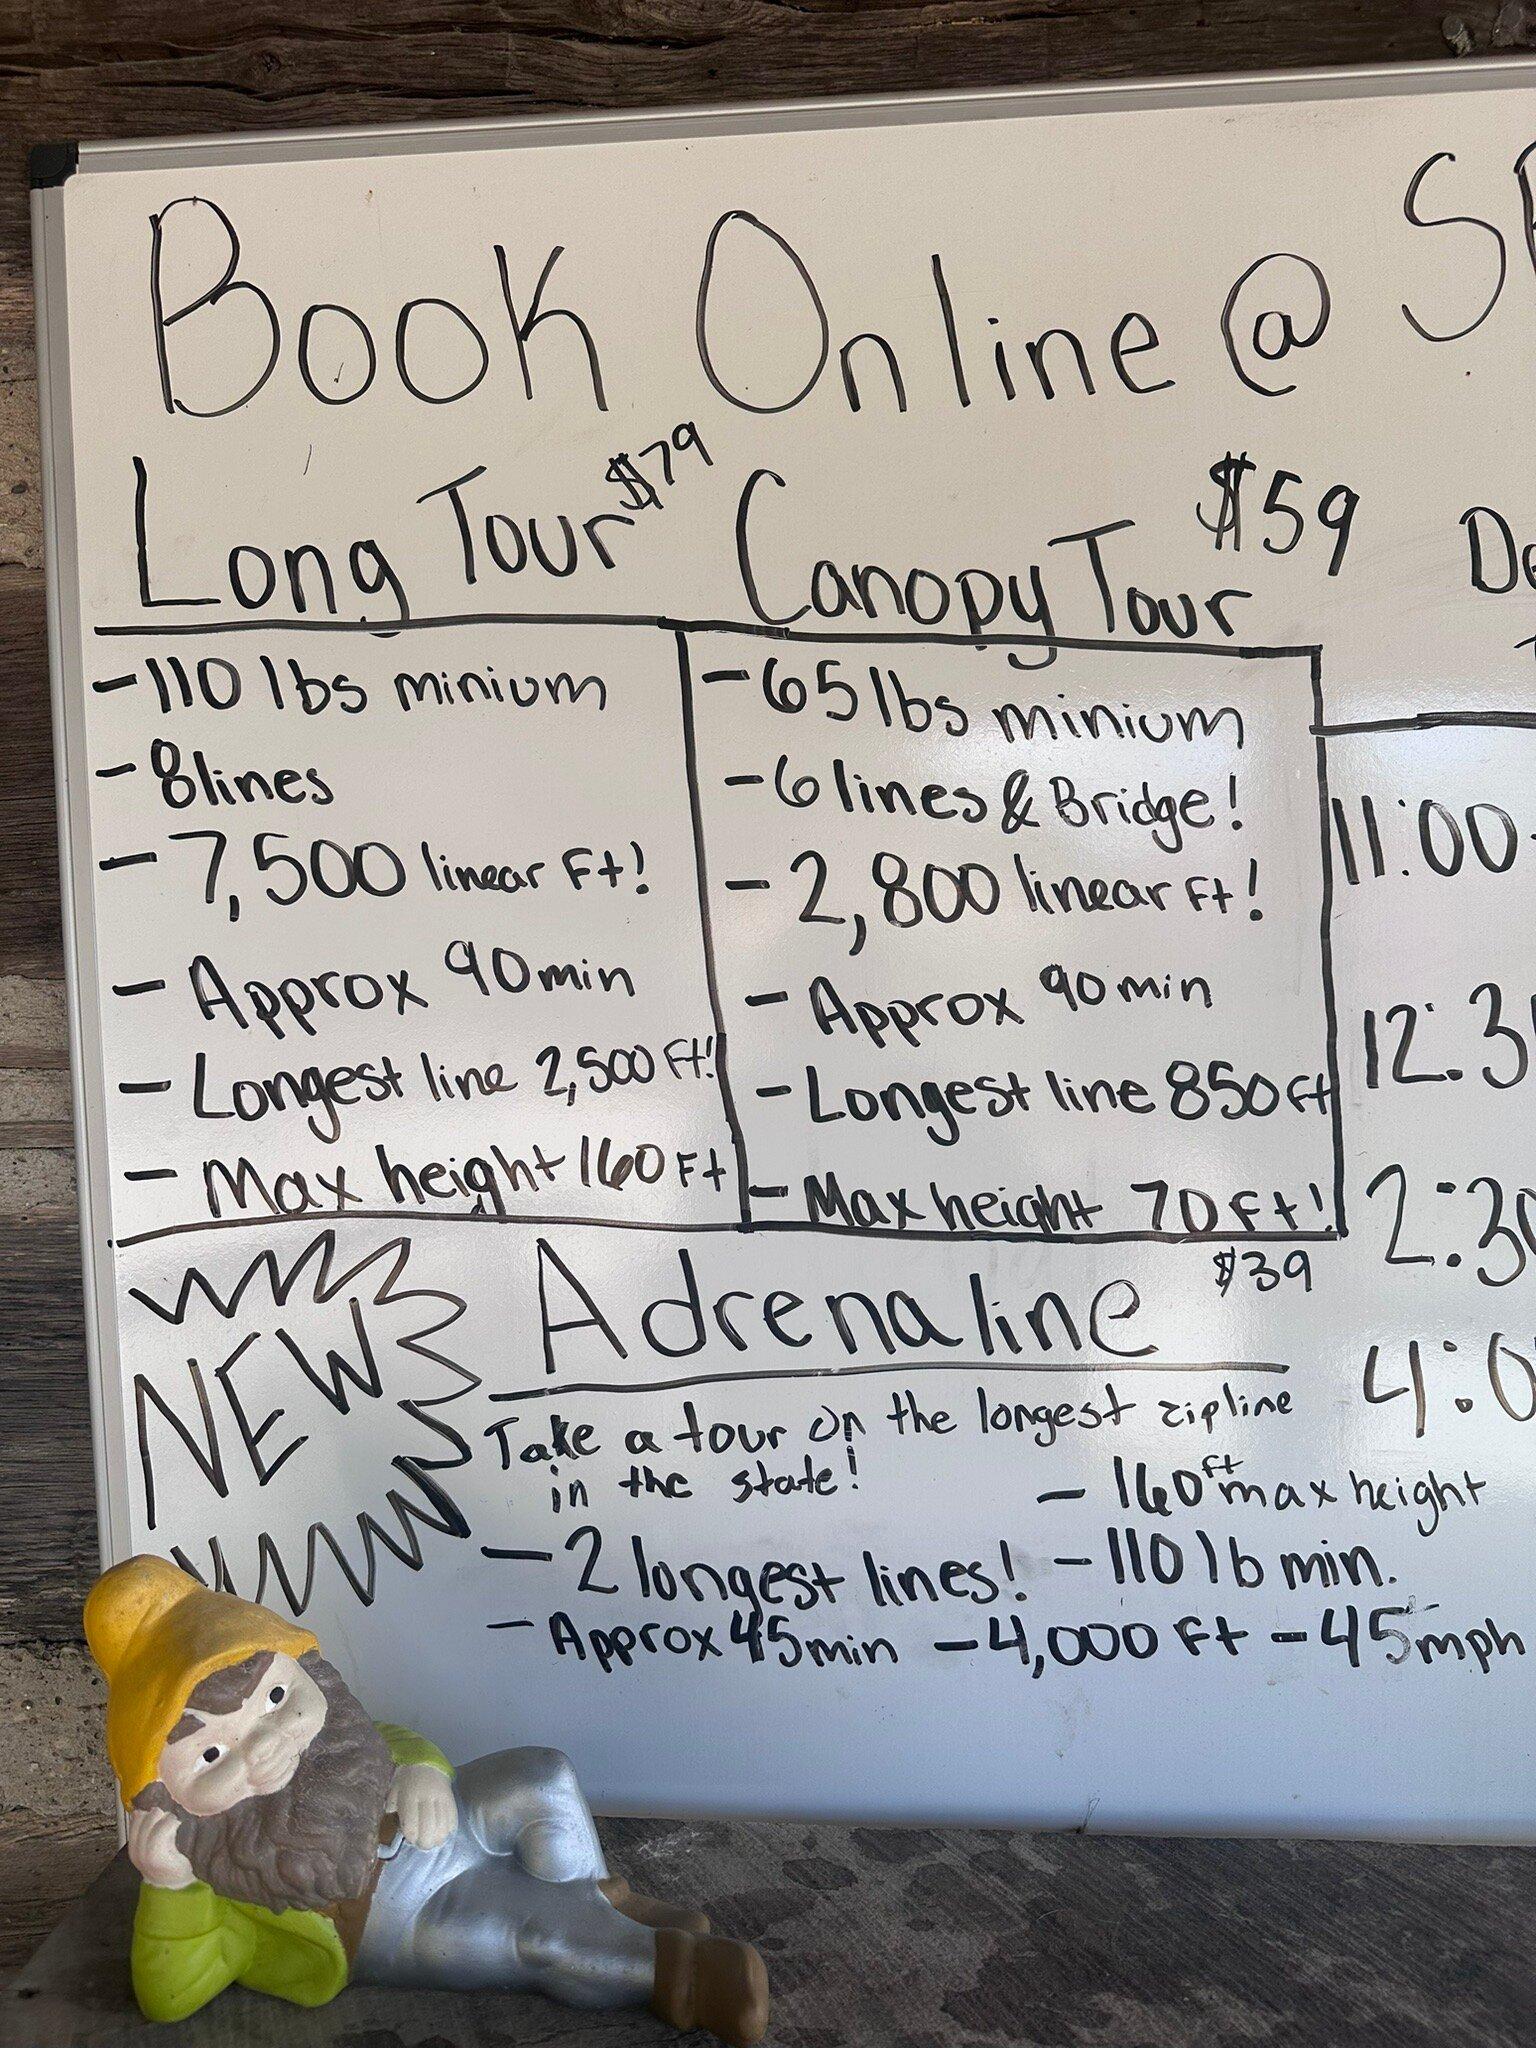 Book Online @ S
Long Tour $79
-110 lbs minium
-8lines
-7,500 linear Ft!
-Approx 90min
-Longest line 2,500 Ft!
-Max height 160 Ft
Canopy Tour $59
-65 lbs minium
-6 lines & Bridge!
-2,800 linear Ft!
-Approx 90min
-Longest line 850 Ft
-Max height 70 Ft!
11:00
12:3
2:30
4:0
NEW
Adrenaline $39
Take a tour on the longest zipline
in the state!
-160ft max height
-2 longest lines! -110 lb min.
-Approx 45min -4,000 Ft -45mph